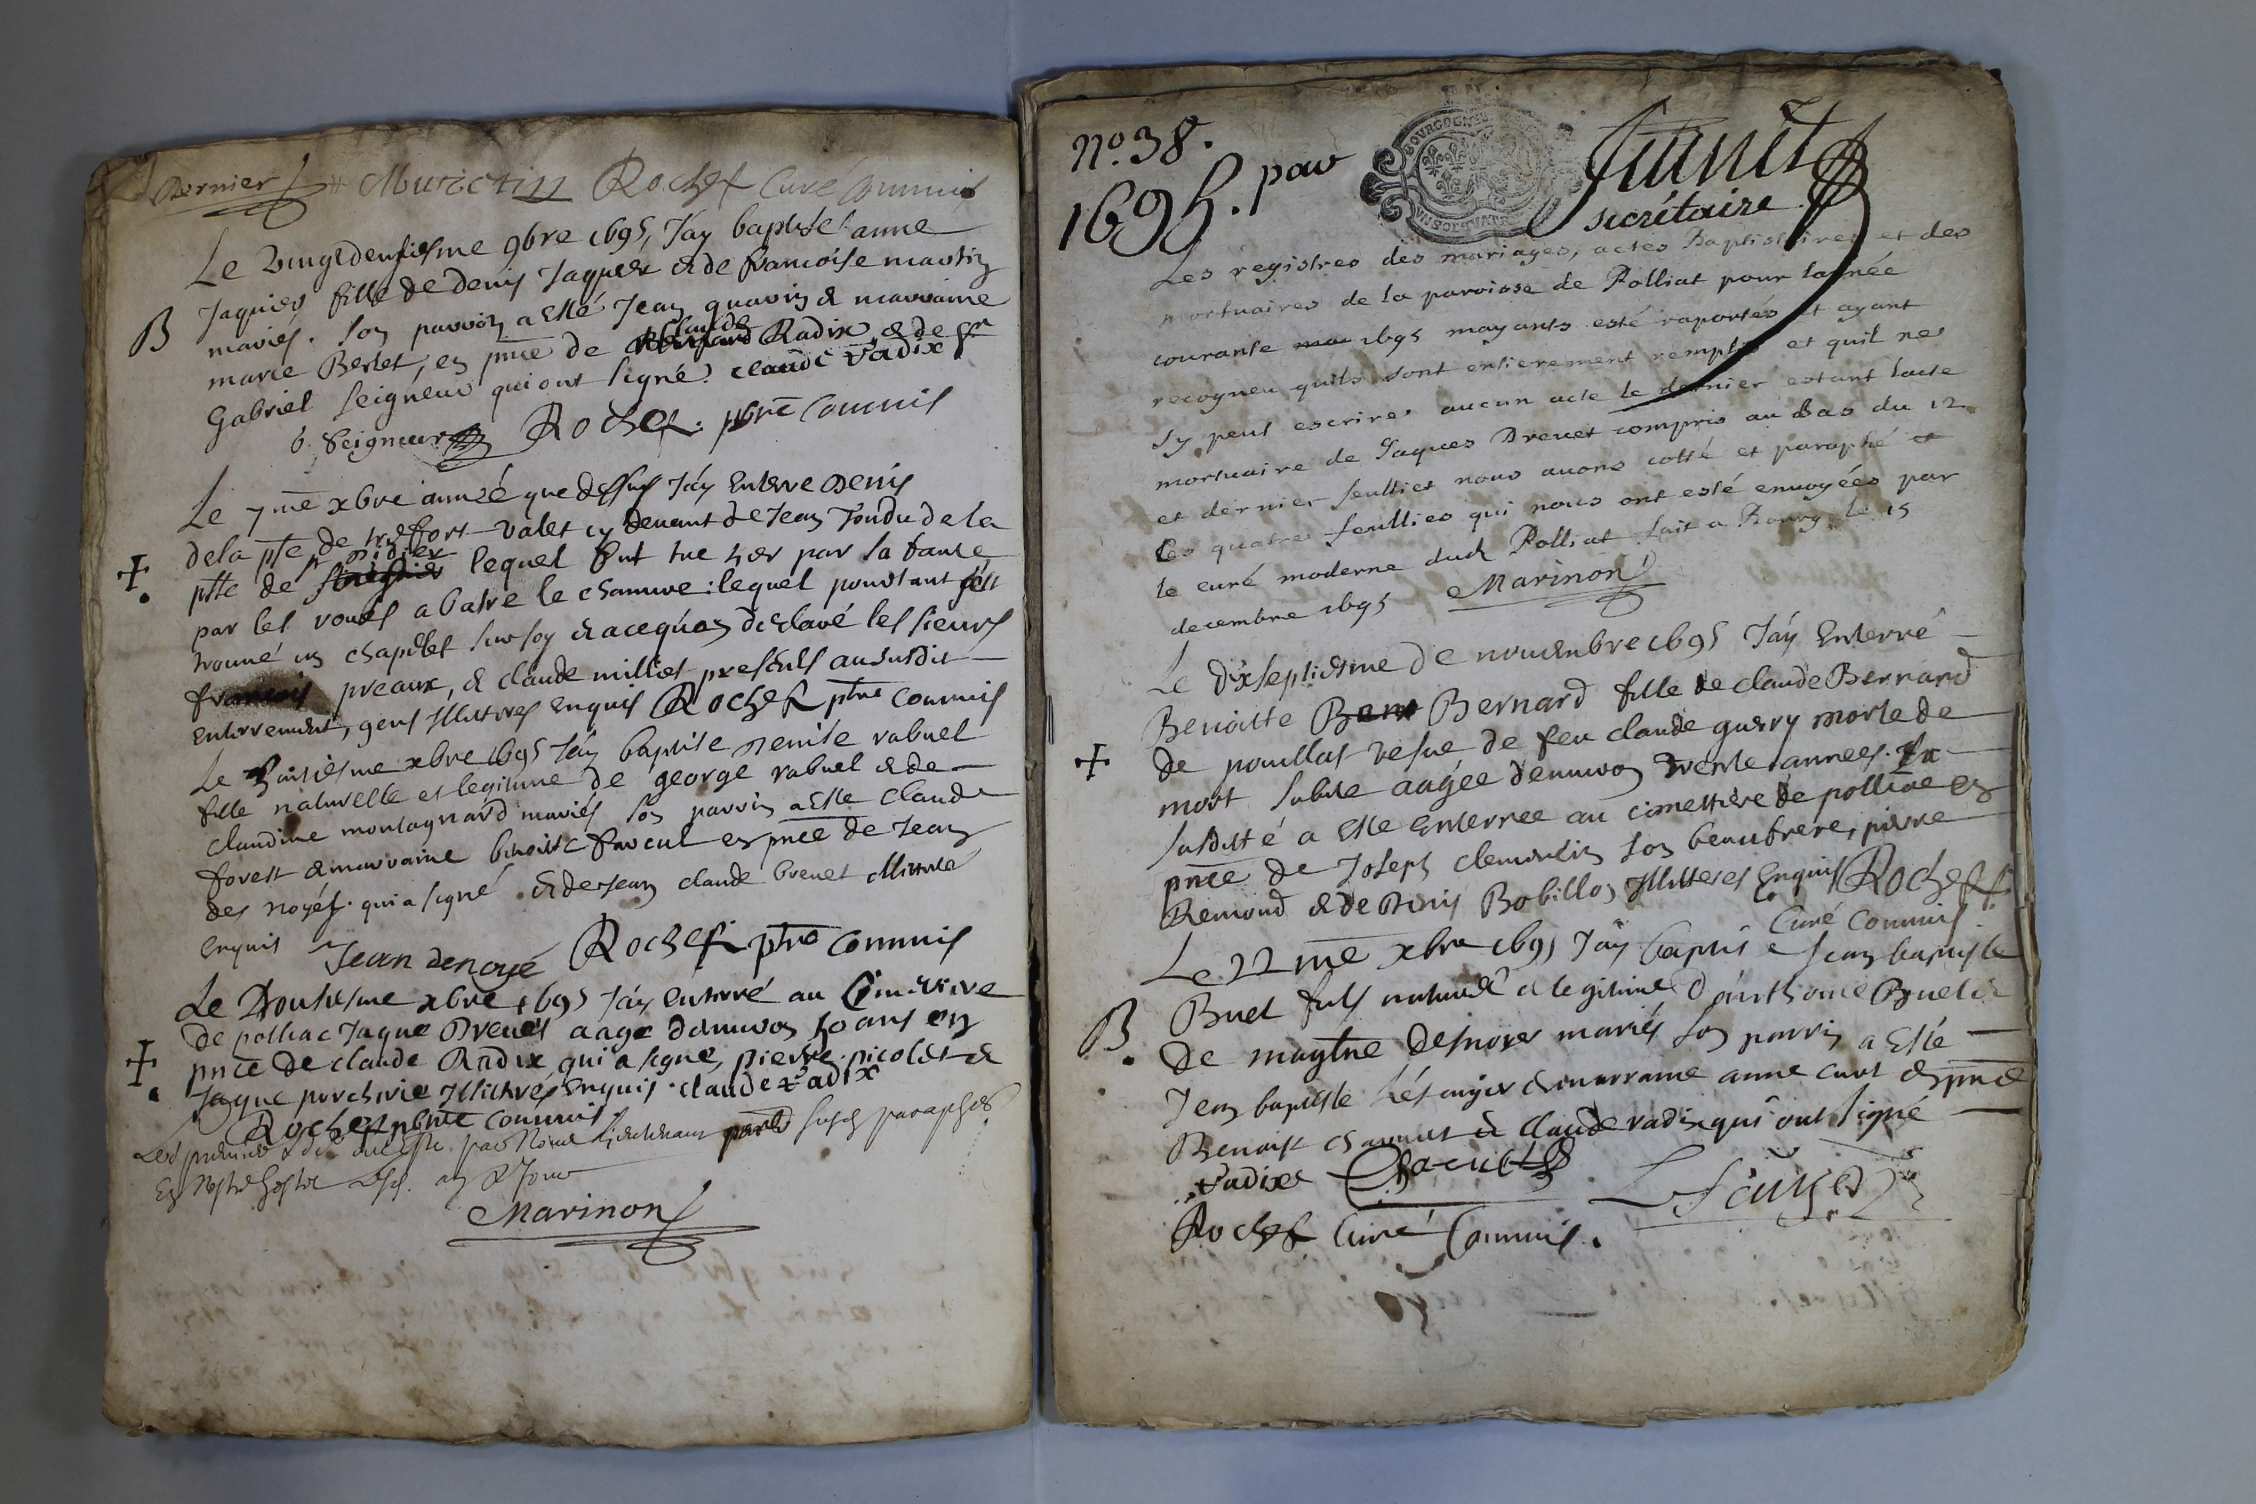 Dernier Rochet Curé Commis
Le Vingtdeusiesme 9bre 1695, J'ay baptisé anne
B
Jaquier fille de Denis Jaquier & de francoise martin
mariés. son parrin a esté Jean guarin & marraine
marie Berlet, en pnce de Claude Radix & de Sr
Gabriel Seigneur qui ont signé. claude radix
G. Seigneur Rochet. pbre Commis
Le 7me xbre année que dessus J'ay Enterré Denis
de la psse de treffort valet cy devant de Jean Tondu de la
+
psse de st Didier lequel fut tué hier par la faute
par les roues a batre le chanvre: lequel pourtant s'est
trouvé un chapelet sur soy & a ce qu'on declaré les sieurs
francois preaux, & claude milliet presents audusdit
enterrement, gens Illitéres enquis Rochet ptre commis
Le huitiesme xbre 1695 J'ay baptisé Denise rabuel
fille naturelle et legitime de george rabuel & de
claudine montagnard mariés son parrin a esté claude
forest & marraine benoiste favcul en pnce de Jean
des noyés. qui a signé & de Jean claude brevet illitere
enquis Jean denoyé Rochet ptre commis
Le Dousiesme xbre 1695 J'ay enterré au Cimetiere
de polliac Jaque Drevet aagé d'environ 50 ans en
+
pnce de claude Radix qui a signé, pierre picolet &
Jaque porcherie Illitéres Enquis. claude radix
Rochet pbre commis
Marinon
no. 38.
1695. par
BOURGOGNE
secrétaire
Les régistres des mariages, actes Baptistaires et des
mortuaires de la paroisse de Polliat pour lannée
courante 1695 mayants esté raportés et ayant
recogneu quils sont entierement remplis et quil ne
sy peut escrire aucun acte le dernier estant lacte
mortuaire de Jaques Drevet compris au bas du 12
et dernier feulliet nous avons cotté et paraphé
les quatre feullies qui nous ont esté envoyées par
le curé moderne dud Polliat fait a Bourg le 15
decembre 1695 Marinon
Le dixseptiesme de novembre 1695 J'ay Enterré
Benoitte Bernard fille de claude Bernard
+
de pouillat vefue de feu claude guerry morte de
mort subite aagée d'environ trente années. La
susditte a esté enterrée au cimettiere de polliac en
pnce de Joseph clemendin son beaufrere, pierre
Remond & de Denis Bobillon Illitéres Enquis Rochet
Curé Commis
Le 22me xbre 1695 J'ay baptisé Jean baptiste
B.
Buet fils naturel & legitime d'anthoine Buet &
de magtne Desnoyer mariés son parrin a esté
Jean baptiste Létanjer & marraine anne curt en pnce
Benoist chanut & claude radix qui ont signé
radix Chanut
Rochet Curé Commis.